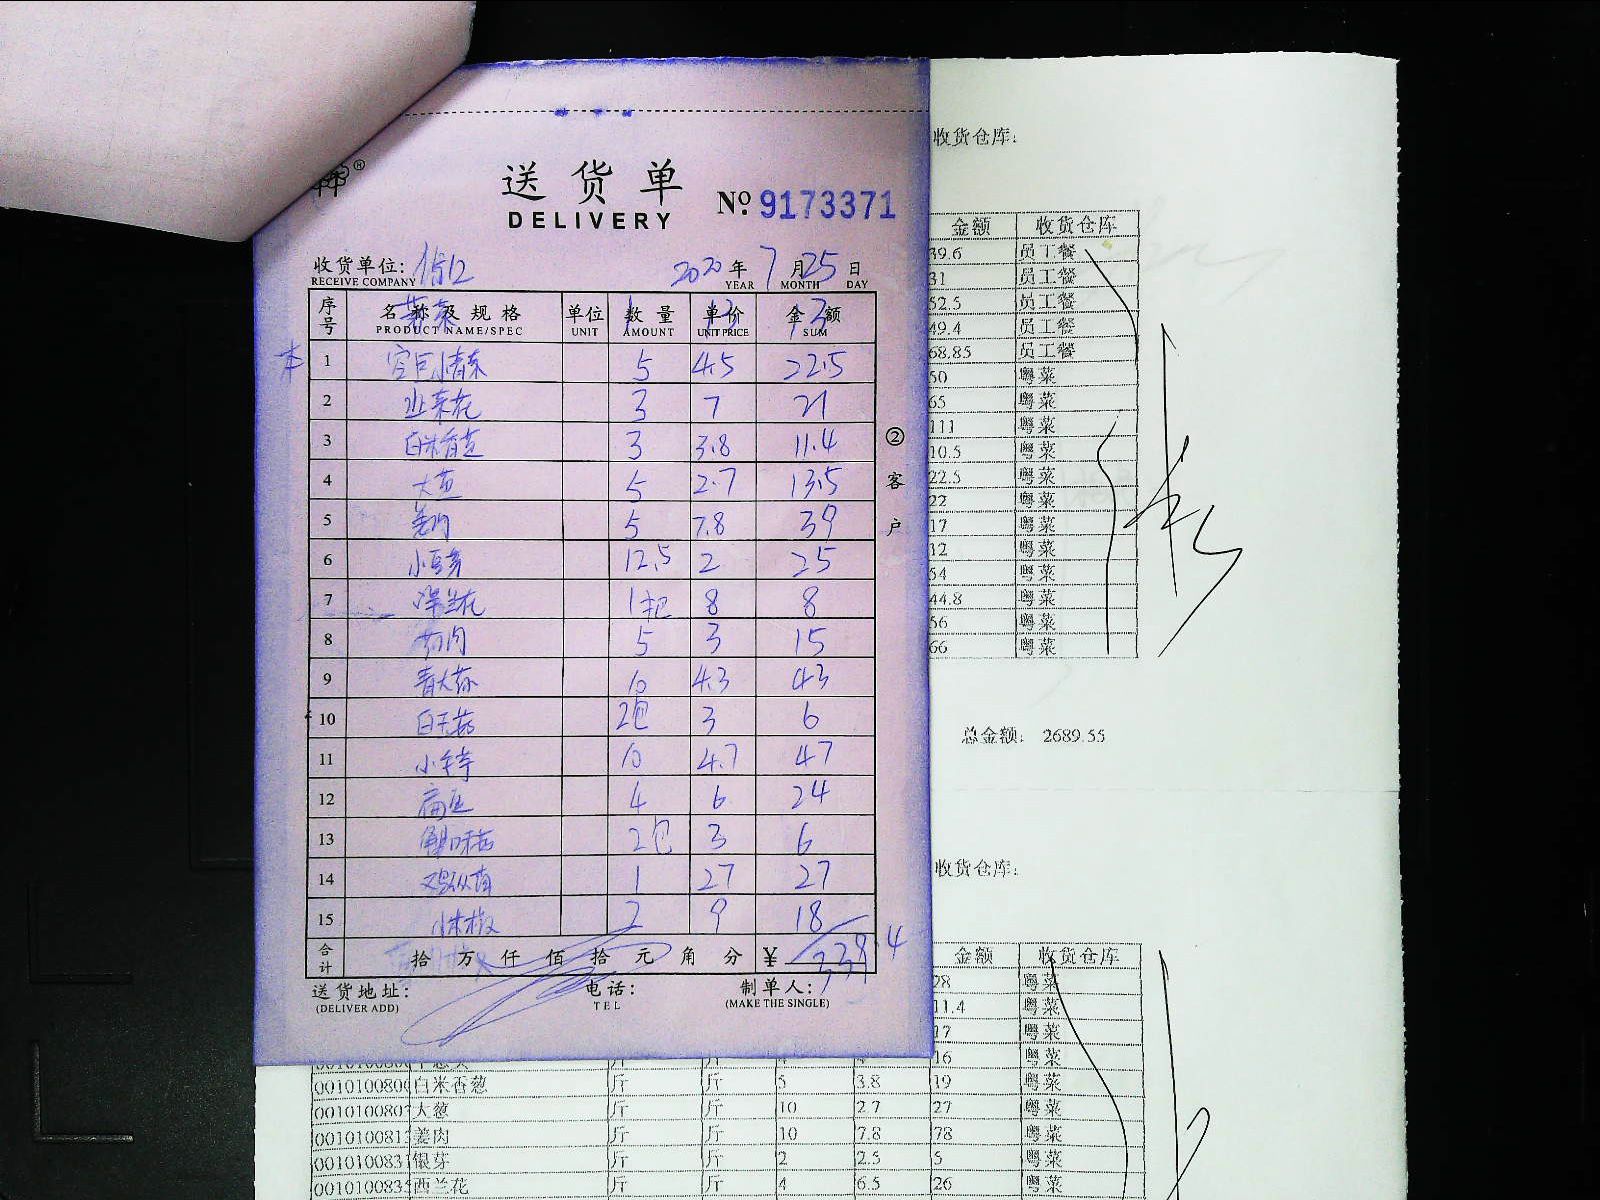 收货仓库:
送货单
DELIVERY
№ 9173371
收货单位:
RECEIVE COMPANY
2020 年 7 月 25 日
YEAR MONTH DAY
序号 名称及规格 单位 数量 单价 金额
PRODUCT NAME/SPEC UNIT AMOUNT UNIT PRICE SUM
1 5 4.5 22.5
2 韭菜花 3 7 21
3 白米香葱 3 3.8 11.4
4 大葱 5 2.7 13.5
5 姜肉 5 7.8 39
6 小豆芽 12.5 2 25
7 1把 8 8
8 5 3 15
9 10 4.3 43
10 白玉菇 2包 3 6
11 10 4.7 47
12 扁豆 4 6 24
13 蟹味菇 2包 3 6
14 鸡枞菌 1 27 27
15 小米椒 2 9 18
合计 拾 万 仟 佰 拾 元 角 分 ¥ 339.4
送货地址: 电话: 制单人:
(DELIVER ADD) TEL (MAKE THE SINGLE)
②客户
金额 收货仓库
39.6 员工餐
31 员工餐
52.5 员工餐
49.4 员工餐
68.85 员工餐
50 粤菜
65 粤菜
111 粤菜
10.5 粤菜
22.5 粤菜
22 粤菜
17 粤菜
12 粤菜
54 粤菜
44.8 粤菜
56 粤菜
66 粤菜
总金额: 2689.55
收货仓库:
金额 收货仓库
28 粤菜
11.4 粤菜
17 粤菜
16 粤菜
白米香葱 斤 斤 5 3.8 19 粤菜
大葱 斤 斤 10 2.7 27 粤菜
姜肉 斤 斤 10 7.8 78 粤菜
银芽 斤 斤 2 2.5 5 粤菜
西兰花 斤 斤 4 6.5 26 粤菜